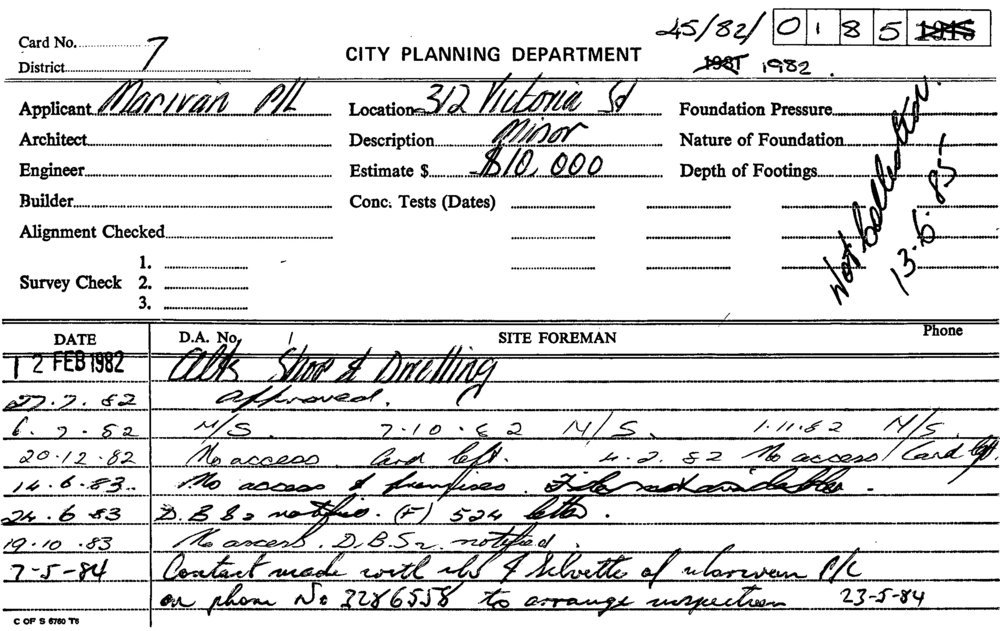 45/82/ 0 1 8 5
Card No. 7
District
CITY PLANNING DEPARTMENT
1981 1982.
Applicant Marivan P/L Location 312 Victoria St Foundation Pressure
Architect Description Minor Nature of Foundation
Engineer Estimate $ $10,000 Depth of Footings
Builder Conc. Tests (Dates)
Alignment Checked
Survey Check 1.
2.
3.
13.6.85
DATE D.A. No. SITE FOREMAN Phone
12 FEB 1982 Alts Shop & Dwelling
27.7.82 Approved.
6.7.82 M/S. 7-10-82 M/S. 1.11.82 M/S.
20.12.82 No access. Card left. 4.2.82 No access/Card left.
14.6.83. No access & premises.
24.6.83 D.B.S. notified. (F) 524 letter.
19.10.83 No access. D.B.S. notified.
7-5-84 Contact made with P/L
on phone No 3286558 to arrange inspection 23-5-84
C OF S 6760 T6